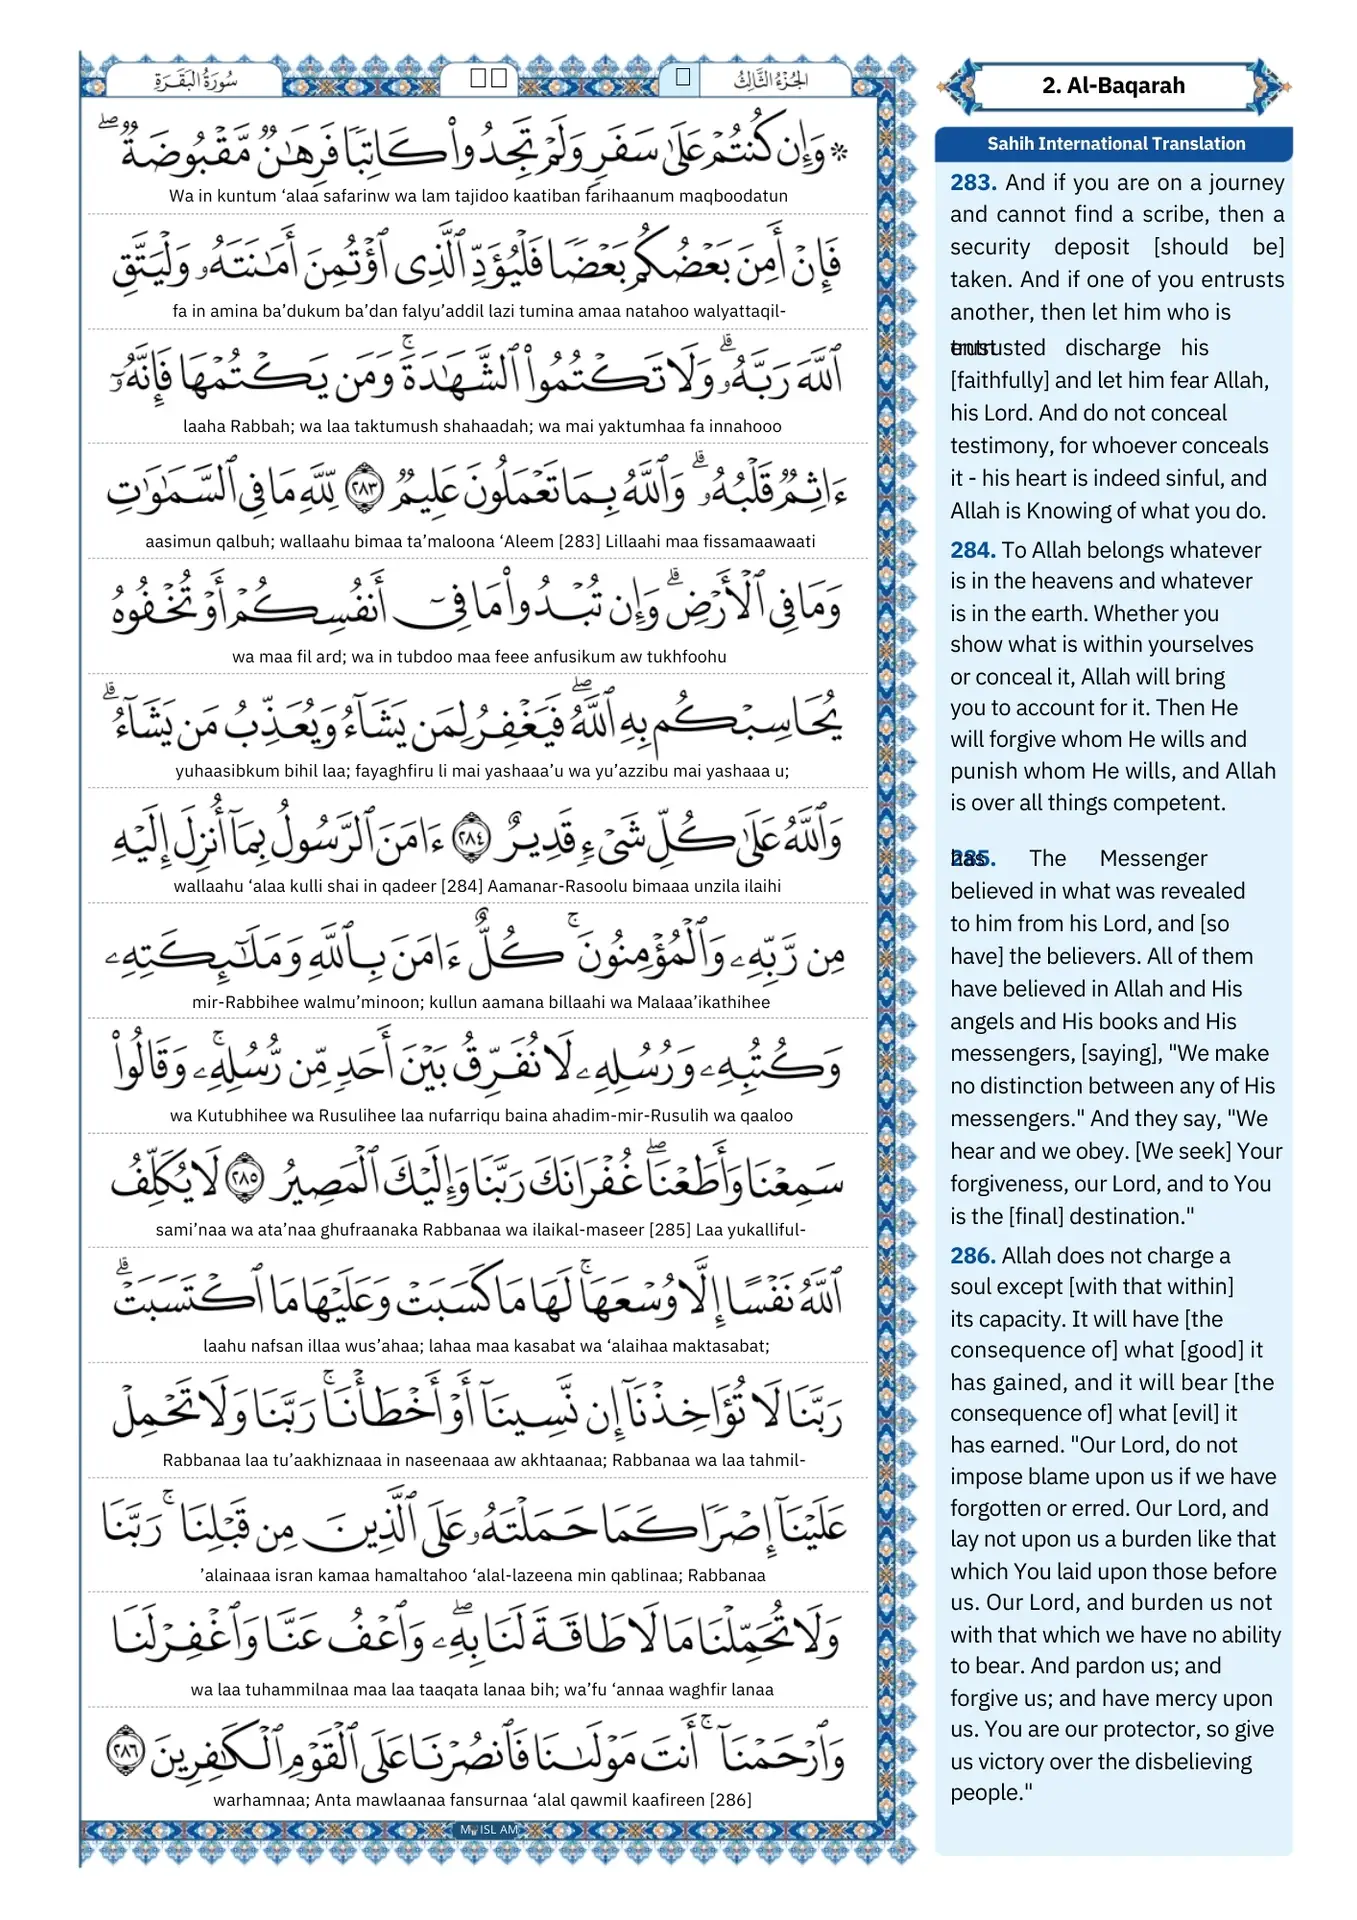 سُورَةُ البَقَرَةِ
الجُزْءُ الثَّالِثُ
۞ وَإِن كُنتُمْ عَلَىٰ سَفَرٍ وَلَمْ تَجِدُوا۟ كَاتِبًا فَرِهَٰنٌ مَّقْبُوضَةٌ ۖ
Wa in kuntum ‘alaa safarinw wa lam tajidoo kaatiban farihaanum maqboodatun
فَإِنْ أَمِنَ بَعْضُكُم بَعْضًا فَلْيُؤَدِّ ٱلَّذِى ٱؤْتُمِنَ أَمَٰنَتَهُۥ وَلْيَتَّقِ
fa in amina ba’dukum ba’dan falyu’addil lazi tumina amaa natahoo walyattaqil-
ٱللَّهَ رَبَّهُۥ ۗ وَلَا تَكْتُمُوا۟ ٱلشَّهَٰدَةَ ۚ وَمَن يَكْتُمْهَا فَإِنَّهُۥٓ
laaha Rabbah; wa laa taktumush shahaadah; wa mai yaktumhaa fa innahooo
ءَاثِمٌ قَلْبُهُۥ ۗ وَٱللَّهُ بِمَا تَعْمَلُونَ عَلِيمٌ ٢٨٣ لِّلَّهِ مَا فِى ٱلسَّمَٰوَٰتِ
aasimun qalbuh; wallaahu bimaa ta’maloona ‘Aleem [283] Lillaahi maa fissamaawaati
وَمَا فِى ٱلْأَرْضِ ۗ وَإِن تُبْدُوا۟ مَا فِىٓ أَنفُسِكُمْ أَوْ تُخْفُوهُ
wa maa fil ard; wa in tubdoo maa feee anfusikum aw tukhfoohu
يُحَاسِبْكُم بِهِ ٱللَّهُ ۖ فَيَغْفِرُ لِمَن يَشَآءُ وَيُعَذِّبُ مَن يَشَآءُ ۗ
yuhaasibkum bihil laa; fayaghfiru li mai yashaaa’u wa yu’azzibu mai yashaaa u;
وَٱللَّهُ عَلَىٰ كُلِّ شَىْءٍ قَدِيرٌ ٢٨٤ ءَامَنَ ٱلرَّسُولُ بِمَآ أُنزِلَ إِلَيْهِ
wallaahu ‘alaa kulli shai in qadeer [284] Aamanar-Rasoolu bimaaa unzila ilaihi
مِن رَّبِّهِۦ وَٱلْمُؤْمِنُونَ ۚ كُلٌّ ءَامَنَ بِٱللَّهِ وَمَلَٰٓئِكَتِهِۦ
mir-Rabbihee walmu’minoon; kullun aamana billaahi wa Malaaa’ikathihee
وَكُتُبِهِۦ وَرُسُلِهِۦ لَا نُفَرِّقُ بَيْنَ أَحَدٍ مِّن رُّسُلِهِۦ ۚ وَقَالُوا۟
wa Kutubhihee wa Rusulihee laa nufarriqu baina ahadim-mir-Rusulih wa qaaloo
سَمِعْنَا وَأَطَعْنَا ۖ غُفْرَانَكَ رَبَّنَا وَإِلَيْكَ ٱلْمَصِيرُ ٢٨٥ لَا يُكَلِّفُ
sami’naa wa ata’naa ghufraanaka Rabbanaa wa ilaikal-maseer [285] Laa yukalliful-
ٱللَّهُ نَفْسًا إِلَّا وُسْعَهَا ۚ لَهَا مَا كَسَبَتْ وَعَلَيْهَا مَا ٱكْتَسَبَتْ ۗ
laahu nafsan illaa wus’ahaa; lahaa maa kasabat wa ‘alaihaa maktasabat;
رَبَّنَا لَا تُؤَاخِذْنَآ إِن نَّسِينَآ أَوْ أَخْطَأْنَا ۚ رَبَّنَا وَلَا تَحْمِلْ
Rabbanaa laa tu’aakhiznaaa in naseenaaa aw akhtaanaa; Rabbanaa wa laa tahmil-
عَلَيْنَآ إِصْرًا كَمَا حَمَلْتَهُۥ عَلَى ٱلَّذِينَ مِن قَبْلِنَا ۚ رَبَّنَا
’alainaaa isran kamaa hamaltahoo ‘alal-lazeena min qablinaa; Rabbanaa
وَلَا تُحَمِّلْنَا مَا لَا طَاقَةَ لَنَا بِهِۦ ۖ وَٱعْفُ عَنَّا وَٱغْفِرْ لَنَا
wa laa tuhammilnaa maa laa taaqata lanaa bih; wa’fu ‘annaa waghfir lanaa
وَٱرْحَمْنَآ ۚ أَنتَ مَوْلَىٰنَا فَٱنصُرْنَا عَلَى ٱلْقَوْمِ ٱلْكَٰفِرِينَ ٢٨٦
warhamnaa; Anta mawlaanaa fansurnaa ‘alal qawmil kaafireen [286]
2. Al-Baqarah
Sahih International Translation
283. And if you are on a journey
and cannot find a scribe, then a
security deposit [should be]
taken. And if one of you entrusts
another, then let him who is
entrusted discharge his
trust
[faithfully] and let him fear Allah,
his Lord. And do not conceal
testimony, for whoever conceals
it - his heart is indeed sinful, and
Allah is Knowing of what you do.
284. To Allah belongs whatever
is in the heavens and whatever
is in the earth. Whether you
show what is within yourselves
or conceal it, Allah will bring
you to account for it. Then He
will forgive whom He wills and
punish whom He wills, and Allah
is over all things competent.
285. The Messenger
has
believed in what was revealed
to him from his Lord, and [so
have] the believers. All of them
have believed in Allah and His
angels and His books and His
messengers, [saying], "We make
no distinction between any of His
messengers." And they say, "We
hear and we obey. [We seek] Your
forgiveness, our Lord, and to You
is the [final] destination."
286. Allah does not charge a
soul except [with that within]
its capacity. It will have [the
consequence of] what [good] it
has gained, and it will bear [the
consequence of] what [evil] it
has earned. "Our Lord, do not
impose blame upon us if we have
forgotten or erred. Our Lord, and
lay not upon us a burden like that
which You laid upon those before
us. Our Lord, and burden us not
with that which we have no ability
to bear. And pardon us; and
forgive us; and have mercy upon
us. You are our protector, so give
us victory over the disbelieving
people."